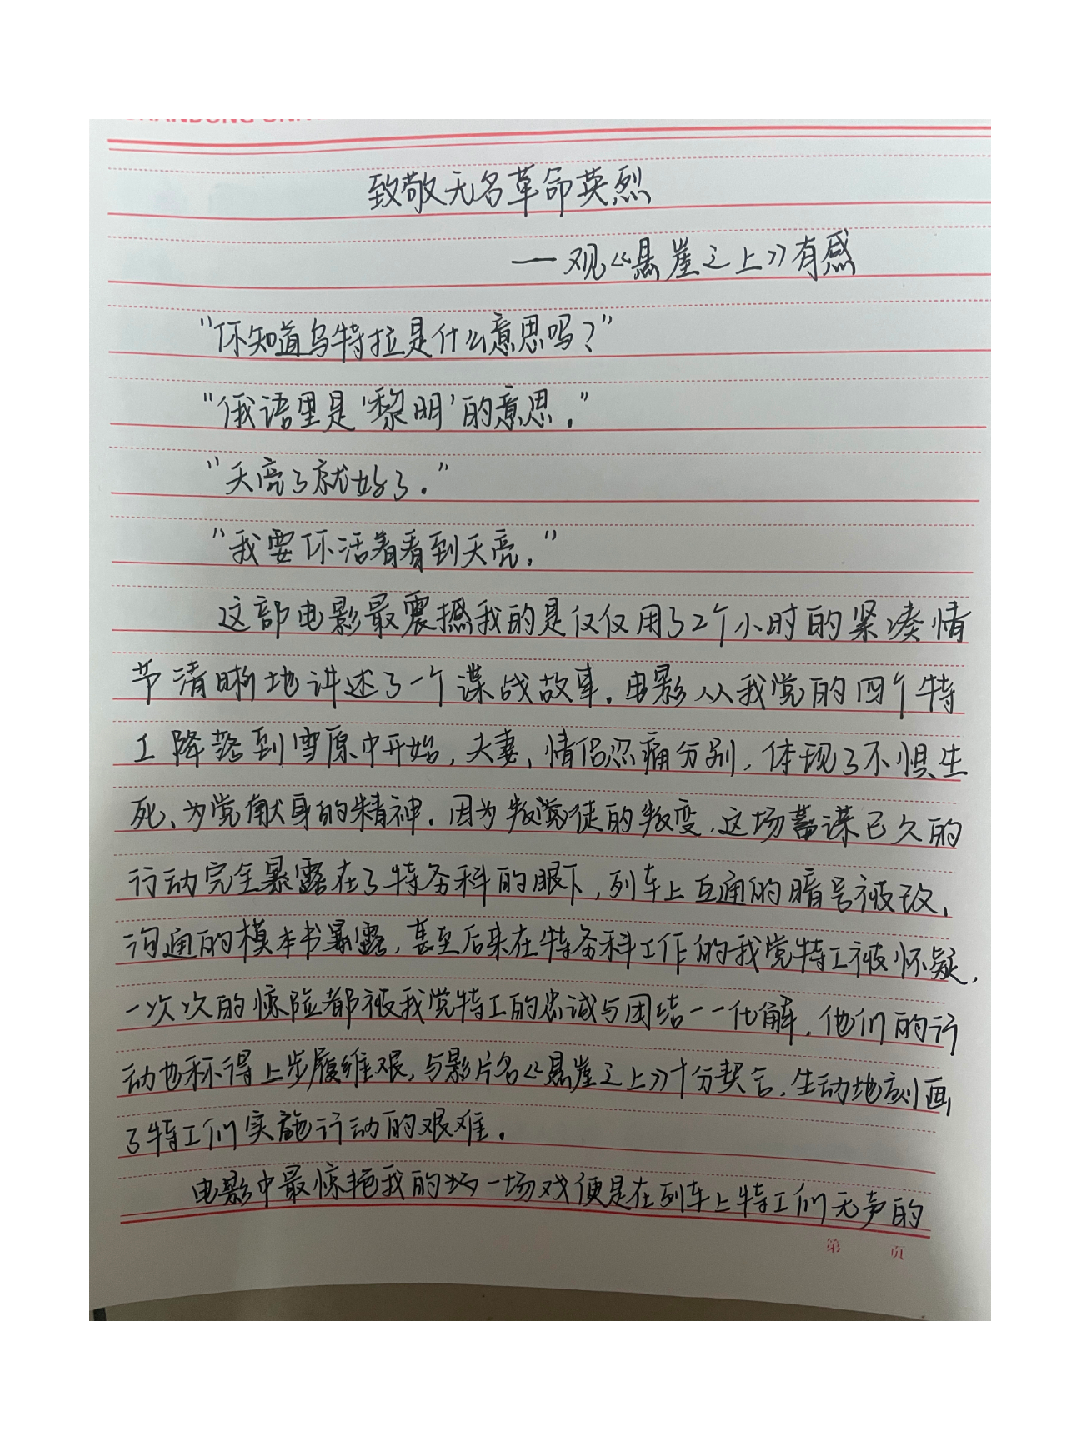 致敬无名革命英烈
——观《悬崖之上》有感
“你知道乌特拉是什么意思吗？”
“俄语里是‘黎明’的意思。”
“天亮了就好了。”
“我要你活着看到天亮。”
这部电影最震撼我的是仅仅用了2个小时的紧凑情
节清晰地讲述了一个谍战故事。电影从我党的四个特
工降落到雪原中开始，夫妻、情侣忍痛分别，体现了不惧生
死、为党献身的精神。因为叛党徒的叛变，这场蓄谋已久的
行动完全暴露在了特务科的眼下，列车上互通的暗号被改，
沟通的模本书暴露，甚至后来在特务科工作的我党特工被怀疑，
一次次的惊险都被我党特工的忠诚与团结一一化解，他们的行
动也称得上步履维艰，与影片名《悬崖之上》十分契合，生动地刻画
了特工们实施行动的艰难。
电影中最惊艳我的一场戏便是在列车上特工们无声的
第 页